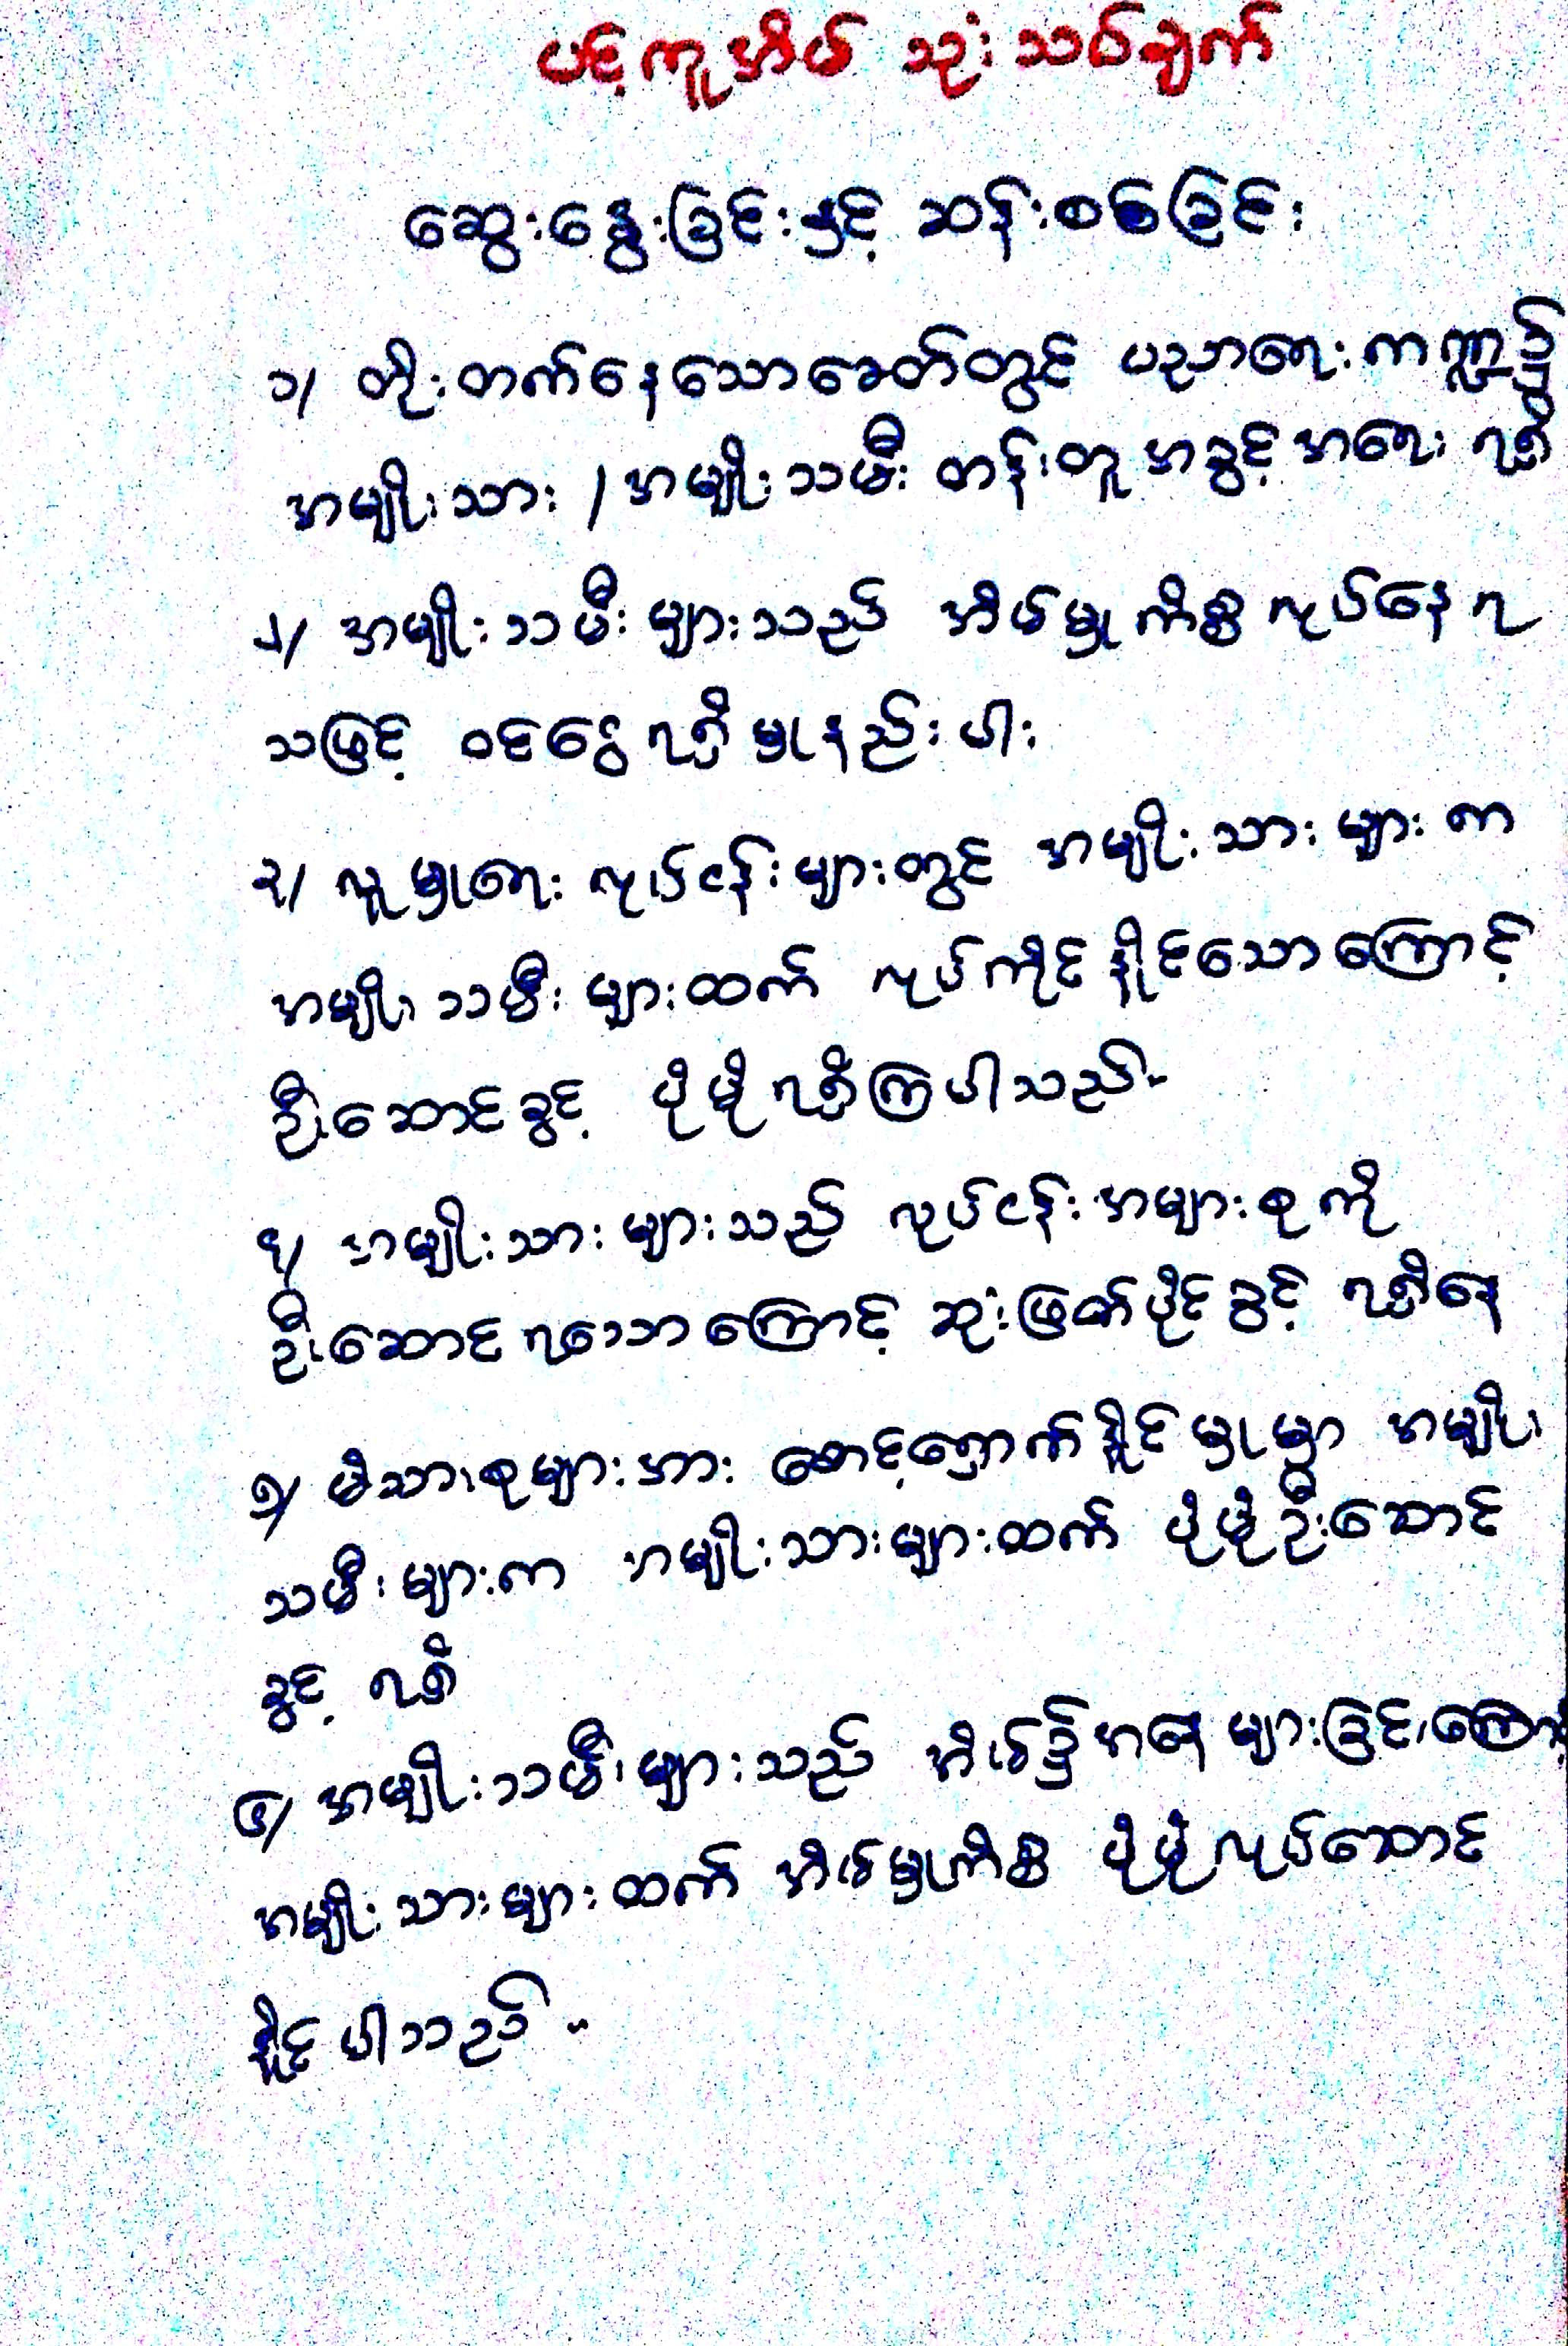 ပင့်ကူအိမ် သုံးသပ်ချက်
ဆွေးနွေးခြင်းနှင့် ဆန်းစစ်ခြင်း
၁/ တိုးတက်နေသောခေတ်တွင် ပညာရေးကဏ္ဍ၌
အမျိုးသား / အမျိုးသမီး တန်းတူ အခွင့်အရေး ရရှိ
၂/ အမျိုးသမီးများသည် အိမ်မှုကိစ္စ လုပ်နေရ
သဖြင့် ဝင်ငွေရရှိမှုနည်းပါး
၃/ လူမှုရေး လုပ်ငန်းများတွင် အမျိုးသားများက
အမျိုးသမီးများထက် လုပ်ကိုင်နိုင်သောကြောင့်
ဦးဆောင်ခွင့် ပိုမိုရရှိကြပါသည်။
၄/ အမျိုးသားများသည် လုပ်ငန်းအများစုကို
ဦးဆောင်ရသောကြောင့် ဆုံးဖြတ်ပိုင်ခွင့် ရရှိနေ
၅/ မိသားစုများအား စောင့်ရှောက်နိုင်မှုမှာ အမျိုး
သမီးများက အမျိုးသားများထက် ပိုမိုဦးဆောင်
ခွင့် ရရှိ
၆/ အမျိုးသမီးများသည် အိမ်၌အနေများခြင်းကြောင့်
အမျိုးသားများထက် အိမ်မှုကိစ္စ ပိုမိုလုပ်ဆောင်
နိုင်ပါသည်။